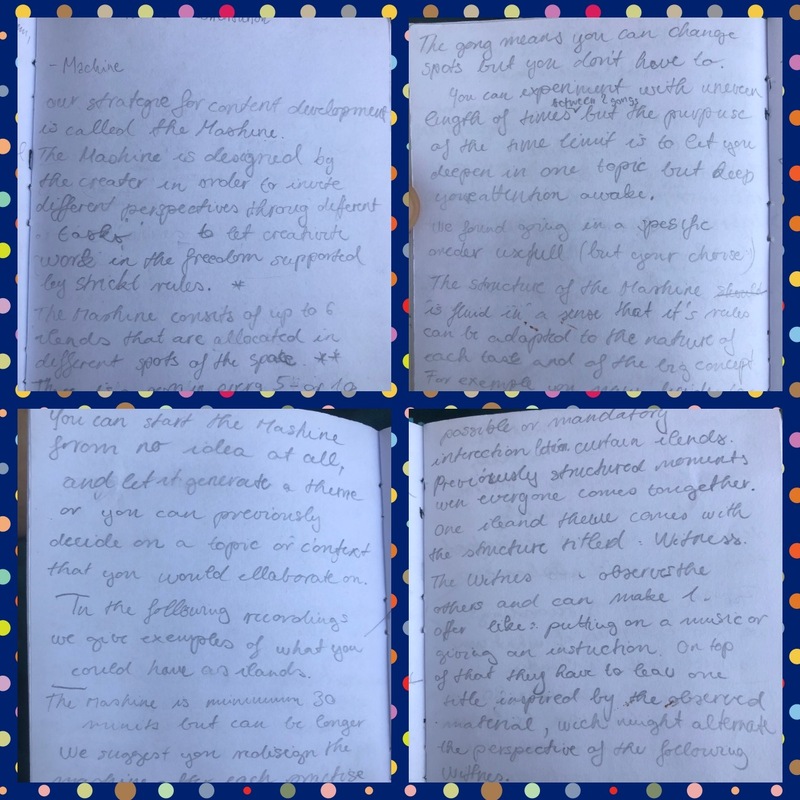 - Machine
our strategie for content development
is called the Mashine.
The Machine is designed by
the creater in order to invite
different perspectives throug different
tasks to let creativity
work in the freedom supported
by strickt rules. *
The Mashine consits of up to 6
ilends that are allocated in
different spots of the space. **
every 5 or 10
The gong means you can change
spots but you don't have to.
You can experiment with uneven
between 2 gongs
length of times but the purpuse
of the time limit is to let you
deepen in one topic but keep
your attention awake.
We found going in a spesific
oreder usefull (but your choise)
The structure of the Mashine should
is fluid in a sense that it's rules
can be adapted to the nature of
each task and of the big concept
For exemple you may decide
You can start the Mashine
forom no idea at all,
and let it generate a theme
or you can previously
decide on a topic or context
that you would ellaborate on.
In the following recordings
we give exemples of what you
could have as ilands.
The Mashine is minimum 30
munits but can be longer
We suggest you redisign the
mashine after each practise
possible or mandatory
interection curtain ilends.
Previously structured moments
wen everyone comes toungether.
One ileand theve comes with
the structure titled: Witness.
The Witnes observes the
others and can make 1
offer like: putting on a music or
giving an instuction. On top
of that they have to leav one
title inspired by the observed
material, wich might alternate
the perspective of the following
Witnes.